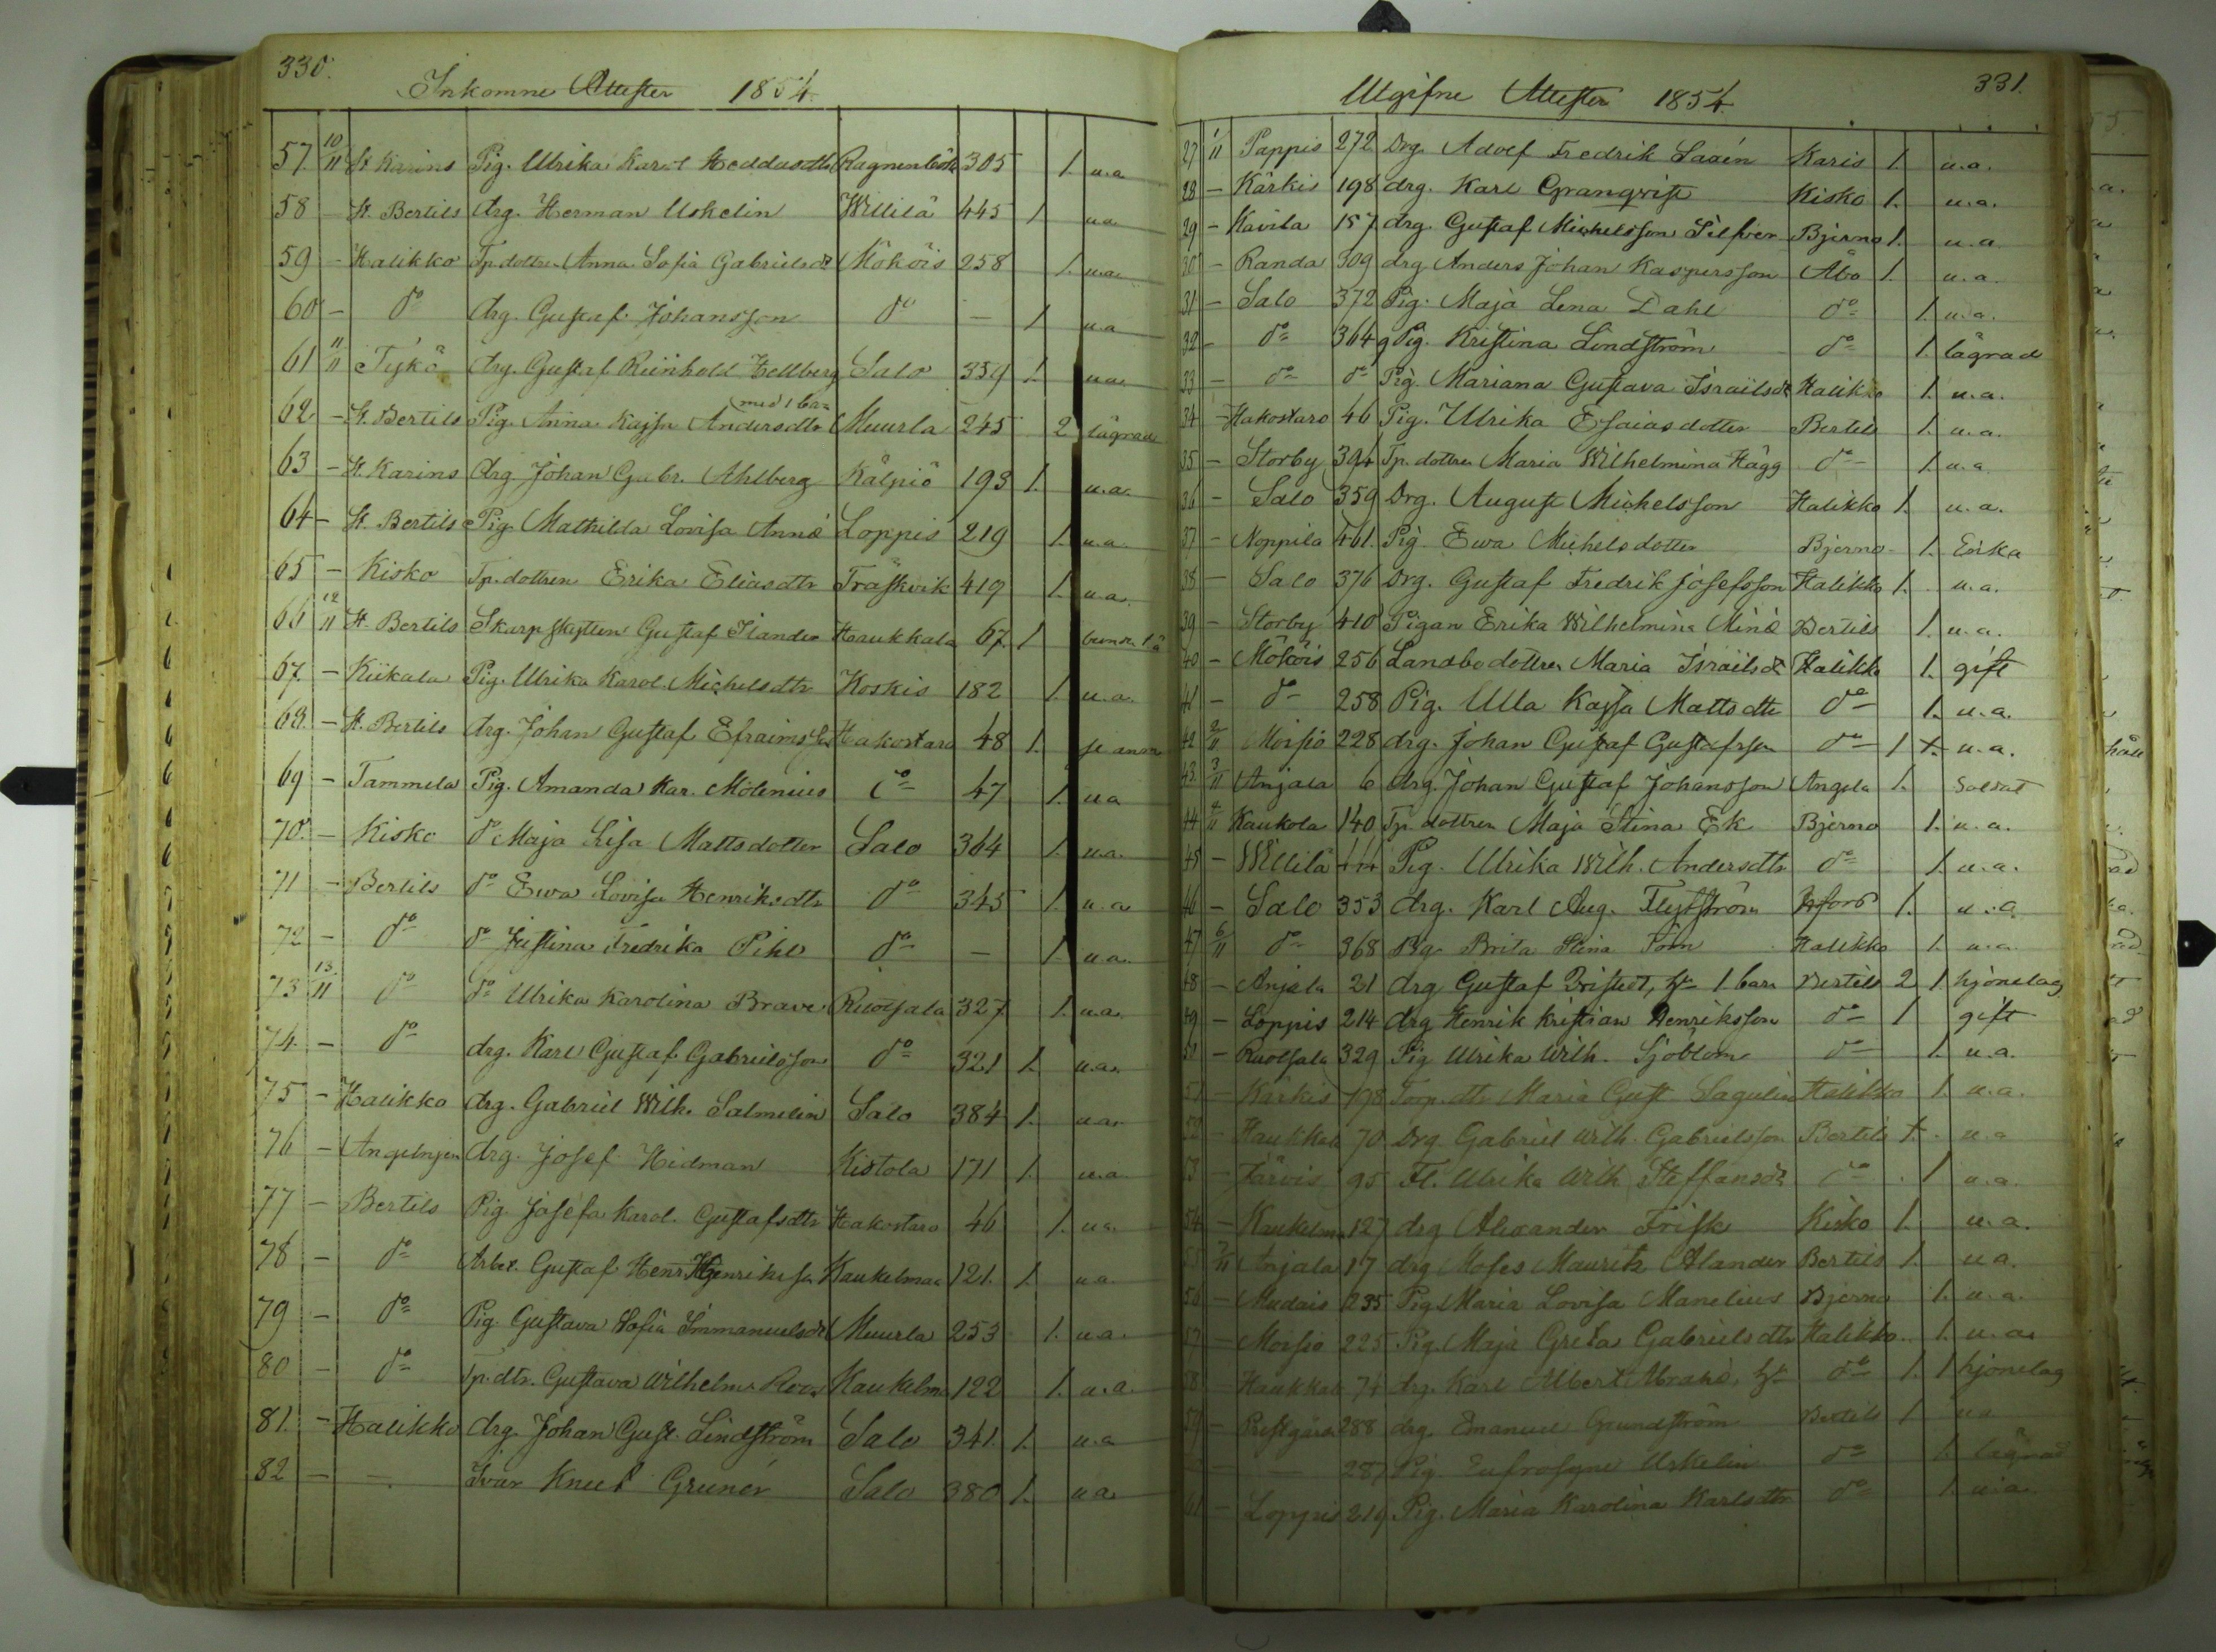 330.
Inkomne Attester 1854.
57. 10/11 St Karins Pig. Ulrika Karol Heddasdtr 305 1. u.a
58 — St. Bertils drg. Herman Uskelin Willilä 445 1 u.a
59 — Halikko Tp. dottren Anna Sofia Gabrielsdr Mököis 258 1. u.a.
60 — do drg. Gustaf Johansson do — 1 u.a
61 11/11 Tykö drg. Gustaf Reinhold Hellberg Salo 359 1. u.a.
62. — St. Bertils Pig. Anna Kajsa Andersdtr (med 1 barn Muurla 245 2 lägrad
63 — St. Karins drg. Johan Gabr. Ahlberg Kälpiö 193 1. u.a.
64 — St. Bertils Pig. Mathilda Lovisa Loppis 219 1. u.a.
65 — Kisko Tp. dottren Erika Eliasdtr Träskvik 419 1. u.a.
66 12/11 St. Bertils Skarpskytten Gustaf Haukkala 67. 1
67. — Kiikala Pig. Ulrika Karol. Michelsdtr Koskis 182 1. u.a.
68. — St. Bertils drg. Johan Gustaf Efraimsson Hakostaro 48 1.
69 — Tammela Pig. Amanda Kar. Mölenius do 47 1. u.a
70. — Kisko do Maja Lisa Mattsdotter Salo 364 1. u.a.
71 — Bertils do Ewa Lovisa Henriksdtr do 345 1. u.a
72 — do do Justina Fredrika Pihl do — 1 u.a.
73 13/11 do do Ulrika Karolina Brave Ruotsala 327 1. u.a.
74 — do drg. Karl Gustaf Gabrielsson do 321 1. u.a.
75 — Halikko drg. Gabriel Wilh. Salmelin Salo 384 1. u.a.
76 — Angelniemi drg. Josef Hidman Kistola 171 1. u.a.
77 — Bertils Pig. Josefa Karol. Gustafsdtr Hakostaro 46 1. u.a.
78 — do Arbet. Gustaf Henr Henriksson Kaukelmaa 121. 1. u.a.
79 — do Pig. Gustava Sofia Immanuelsdr Muurla 253 1. u.a.
80 — do Tp. dtr. Gustava Wilhelm. Roos Kaukelm 122 1. u.a.
81. — Halikko drg. Johan Gust. Lindström Salo 341. 1. u.a
82 — — Ivar Knut Grunér Salo 380 1. u.a.
331.
Utgifne Attester 1854.
27 1/11 Pappis 272 Drg. Adolf Fredrik Karis 1. u.a.
28 — Kärkis 198 drg. Karl Granqvist Kisko 1. u.a.
29 — Kavila 157 drg. Gustaf Michelsson Silfver Bjerno 1. u.a
30 — Randa 309 drg Anders Johan Kaspersson Åbo 1. u.a.
31 — Salo 372 Pig. Maja Lena Dahl do 1. u.a.
32 — do 364 Pig. Kristina Lindström do 1. lägrad
33 — do do Pig. Mariana Gustava Israilsdr Halikko 1. u.a.
34 — Hakostaro 46 Pig. Ulrika Esaiasdotter Bertils 1. u.a.
35 — Storby 394 Tp. dottren Maria Wilhelmina Hägg do 1. u.a.
36 — Salo 359 Drg. August Michelsson Halikko 1. u.a.
37 — Noppila 461. Pig. Ewa Michelsdotter Bjerno 1. Enka
38 — Salo 376 Drg. Gustaf Fredrik Josefsson Halikko 1. u.a.
39 — Storby 410 Pigan Erika Wilhelmina Bertils 1. u.a.
40 — Mököis 256 Landbodottren Maria Israilsdr Halikko 1. gift
41 — do 258 Pig. Ulla Kajsa Mattsdtr do 1. u.a.
42 2/11 Moisio 228 drg. Johan Gustaf Gustafsson do 1 u.a.
43. 3/11 Anjala 6 drg. Johan Gustaf Johansson Angela 1. Soldat
44 4/11 Kaukola 140 Tp. dottren Maja Stina Ek Bjerno 1. u.a.
45 — Willilä 444 Pig. Ulrika Wilh. Andersdtr do 1. u.a.
46 — Salo 353 drg. Karl Aug. Flytström 1. u.a
47 6/11 do 368 Pig. Brita Stina Halikko 1. u.a.
48 — Anjala 21 drg Gustaf 1 barn Bertils 2 1 hjonelag
49 — Loppis 214 drg Henrik Kristian Henriksson do 1 gift
50 — Ruotsala 329 Pig Ulrika Wilh. Sjöblom do 1. u.a.
51 — Kärkis 198 Torp. dtr Maria Gust Sagulin Halikko 1. u.a.
52 — Haukkala 70 Drg Gabriel Wilh. Gabrielsson Bertils u.a
53 — Järvis 95 Fl. Ulrika Wilh. Steffansdr do 1 u.a.
54 — Kaukelma 127 drg Alexander Frisk Kisko 1. u.a.
55 7/11 Anjala 17 drg Moses Mauritz Alander Bertils 1. u.a.
56 — 235 Pig Maria Lovisa Manelius Bjerno 1. u.a.
57 — Moisio 225 Pig. Maja Greta Gabrielsdtr Halikko 1. u.a.
58 — Haukkala 74 drg. Karl Albert do 1. 1 hjonelag
59 — Prestgård 288 drg. Emanuel Grundström Bertils 1 u.a
— 287 Pig. Eufrosyne Uskelin do 1. lägrad
61 — Loppis 219 Pig. Maria Karolina Karlsdtr do 1. u.a.